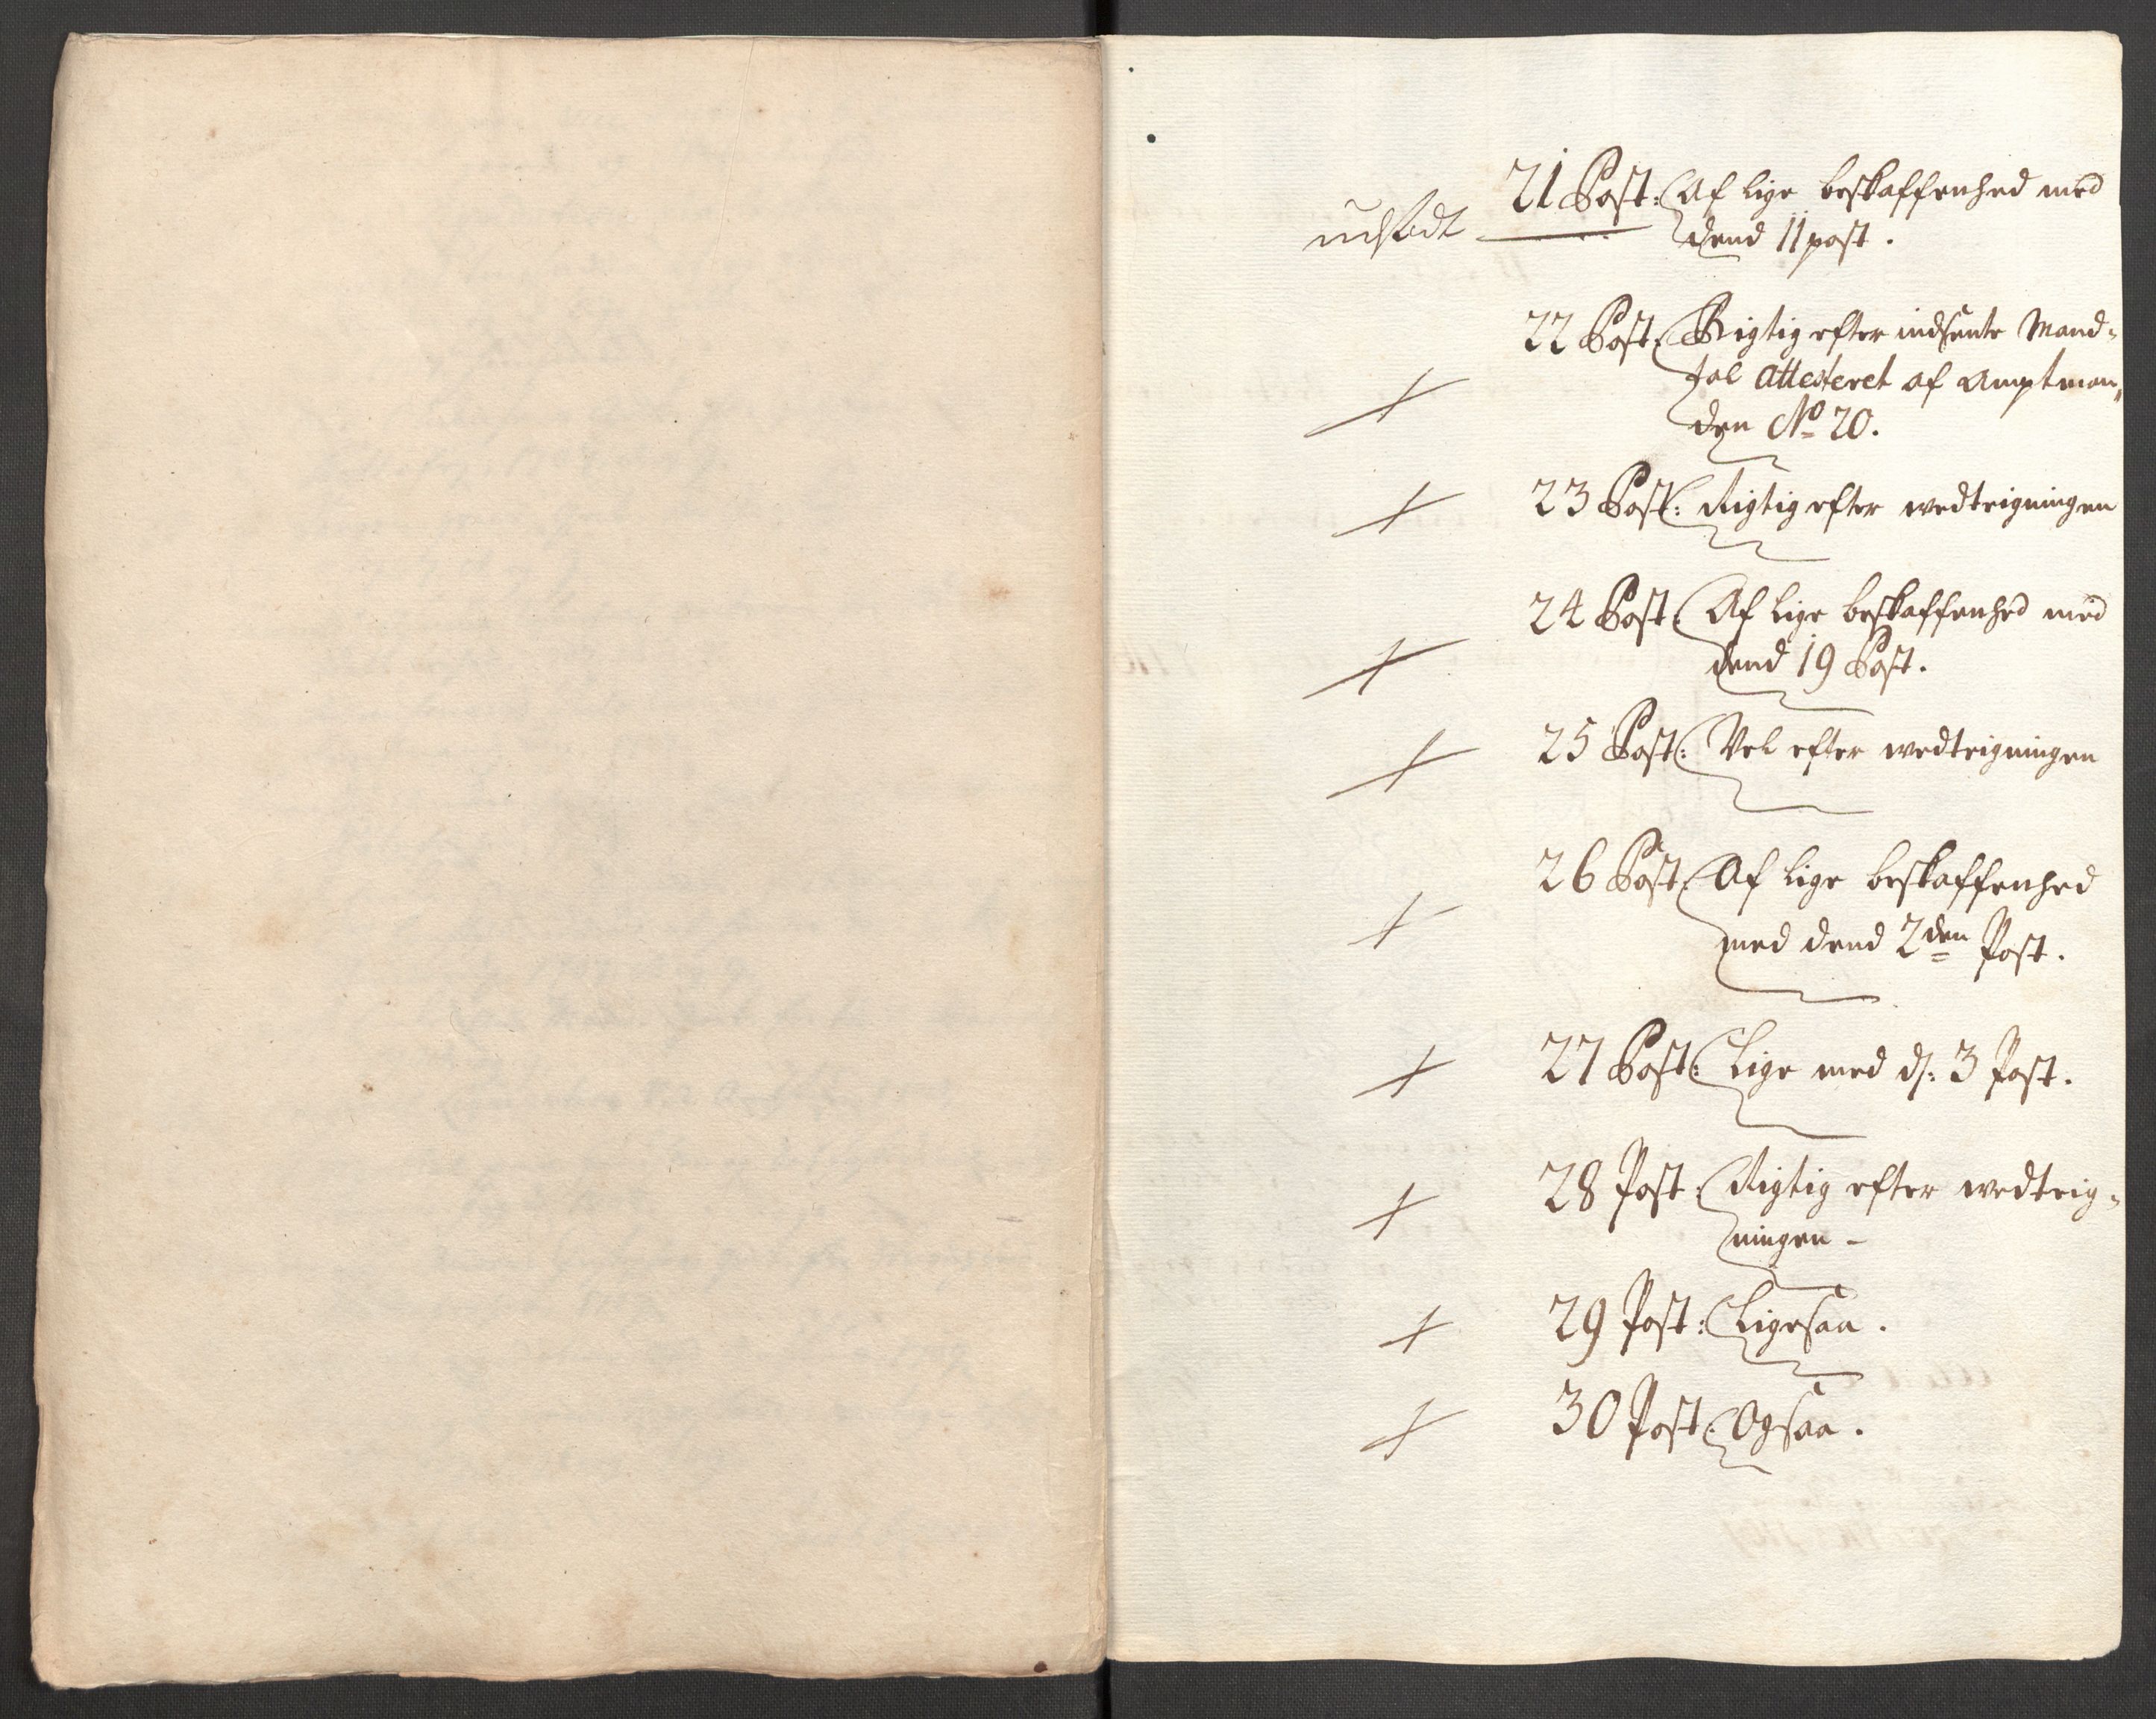 21 Post: Af lige beskaffenhed med
dend 11 post.
22 Post: Rigtig efter indsente Mand-
tal Attesteret af Amptman„
den No 20.
23 Post: Rigtig efter wedtegningen
24 Post: Af lige beskaffenhed med
dend 19 Post.
25 Post: Vel efter wedtegningen
26 Post: Af lige beskaffenhed
med dend 2den Post.
27 Post: Lige med ds: 3 Post.
28 Post: Rigtig efter wedteig-
ningen -
29 Post: Ligesaa.
30 Post: Ogsaa.